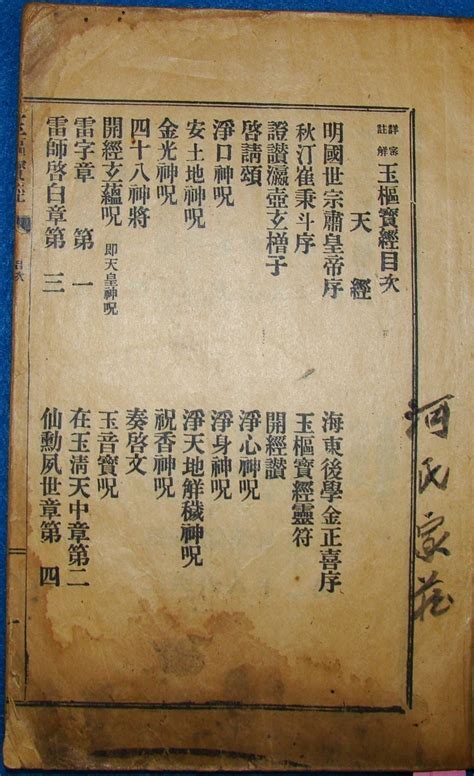 詳密註解 玉樞寶經目次
天經
明國世宗肅皇帝序
海東後學金正喜序
秋汀崔秉斗序
玉樞寶經靈符
證讃瀛壺玄櫓子
開經讃
啓請頌
淨心神呪
淨口神呪
淨身神呪
安土地神呪
淨天地解穢神呪
金光神呪
祝香神呪
四十八神將
奏啓文
開經玄蘊呪 卽天皇神呪
玉音寶呪
雷字章第一
在玉淸天中章第二
雷師啓白章第三
仙勳夙世章第四
玉樞寶經
目次
一
河氏家藏